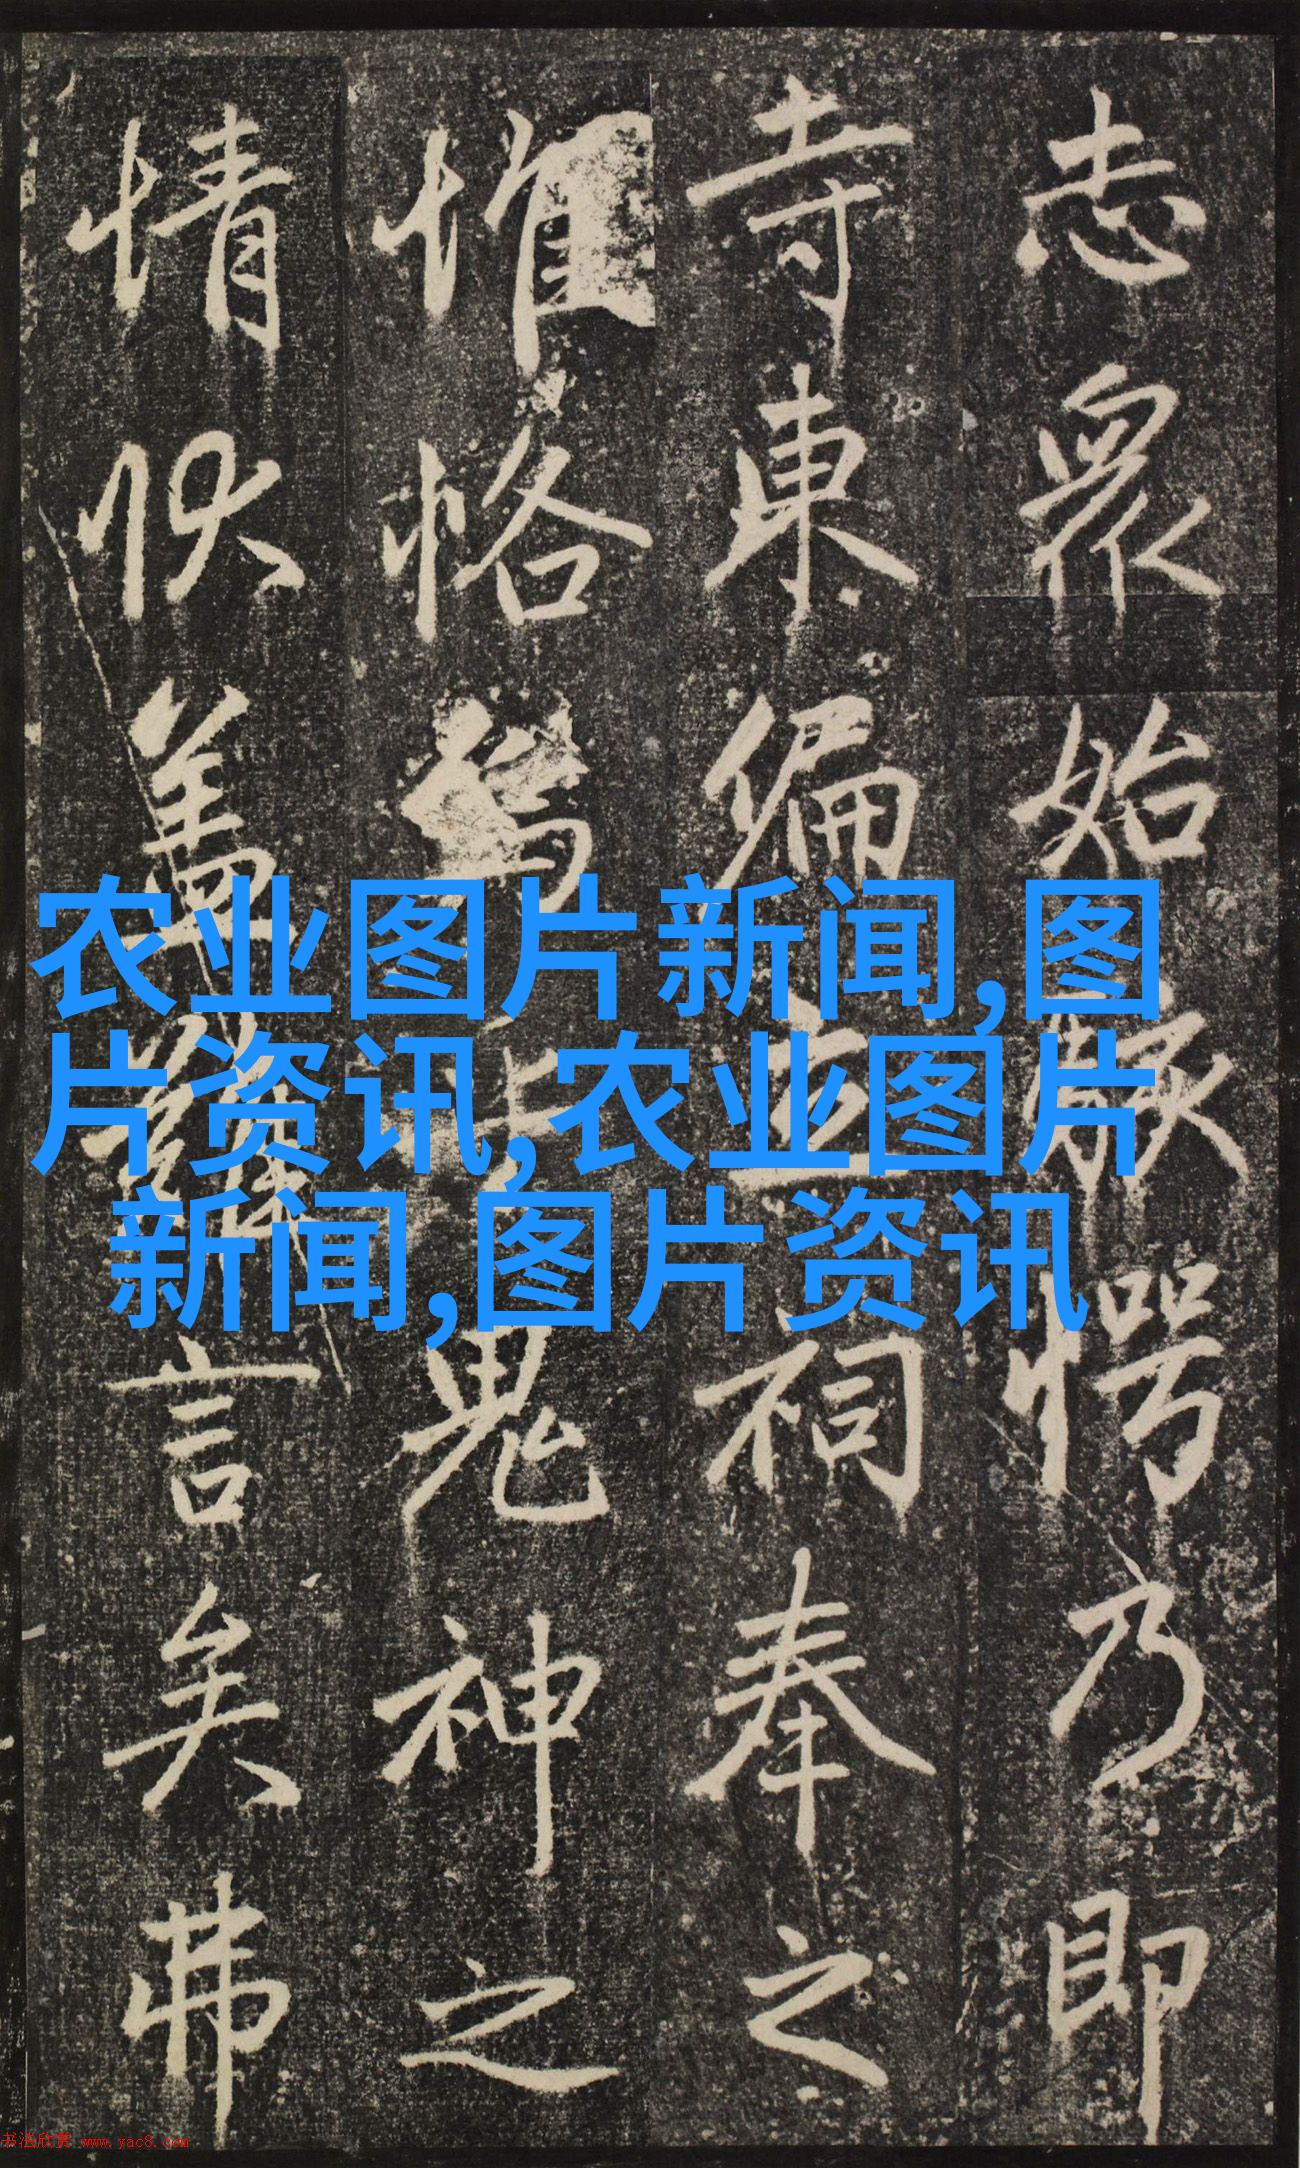 志眾始駭愕乃即
寺東偏並祠奉之
惟恪鬼神之
情伏盖難言矣弗
农业图片新闻,图
片资讯,农业图片
新闻,图片资讯
书法欣赏 www.yac8.com